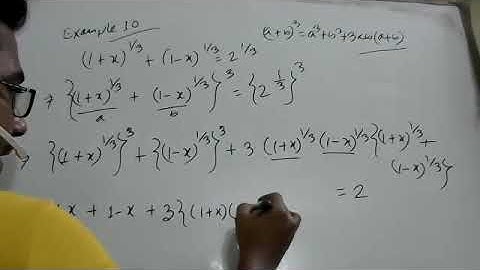 Example 10
(a+b)³ = a³+b³+3ab(a+b)
(1+x)^1/3 + (1-x)^1/3 = 2^1/3
⇒ {(1+x)^1/3 + (1-x)^1/3}³ = {2^1/3}³
a b
⇒ {(1+x)^1/3}³ + {(1-x)^1/3}³ + 3 (1+x)^1/3 (1-x)^1/3 {(1+x)^1/3 +
(1-x)^1/3}
= 2
x + 1-x + 3{(1+x)(